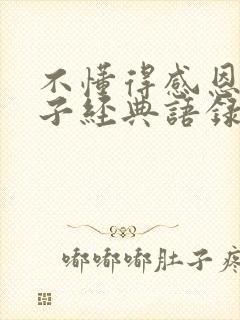 不懂得感恩
子經典語錄
嘟嘟嘟肚子疼